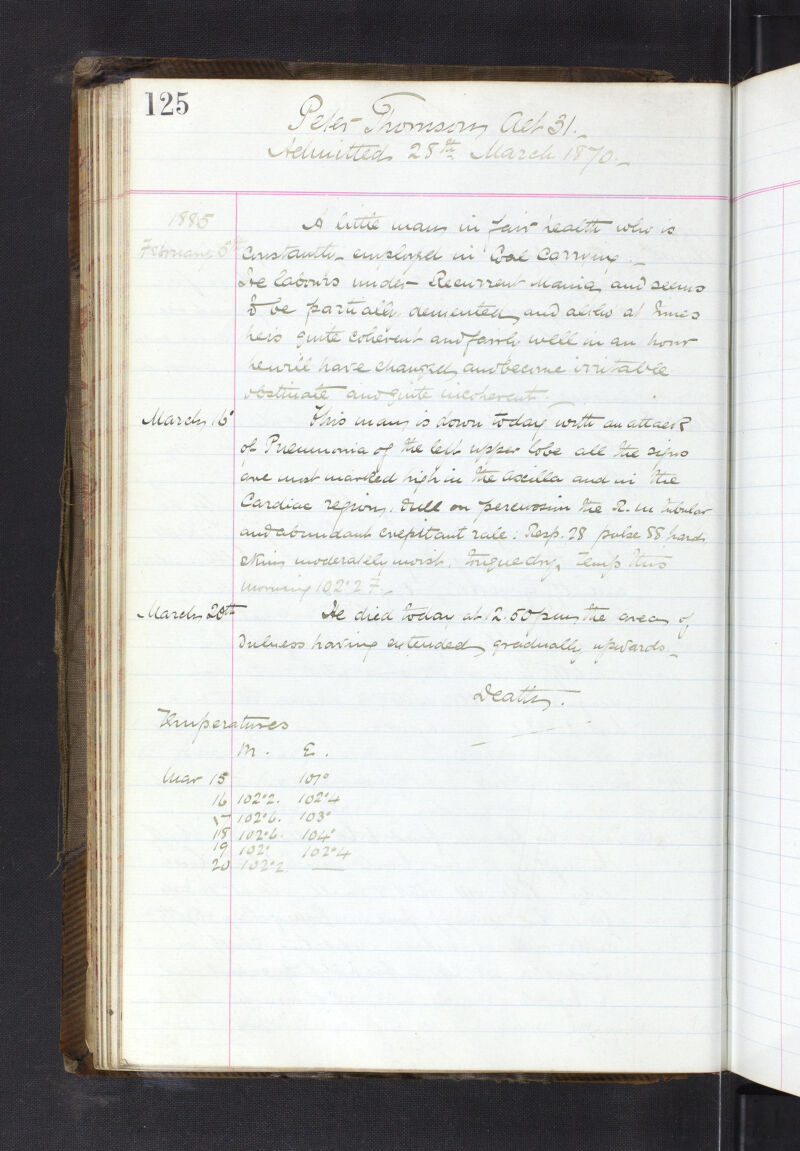 125
Peter Thomson Aet 31.
Admitted 28th March 1870.
1885
February 5th
A little man in fair health who is
constantly employed in Coal Carrying.
He labours under Recurrent Mania and seems
to be partially demented and altho at times
he is quite coherent and fairly well in an hour
he will have changed and become irritable
obstinate and quite incoherent.
March 16
This man is down today with an attack
of Pneumonia of the left upper lobe all the signs
are most marked high in the axilla and in the
Cardiac region. Dull on percussion the R. m tubular
and abundant crepitant rale: Resp. 28 pulse 88 hard
Skin moderately moist, tongue dry, Temp this
morning 102°2 F.
March 20th
He died today at 12.50 pm the area of
dulness having extended gradually upwards
Death.
Temperatures
M. E.
Mar 15 101°
16 102°2. 102°4
17 102°6. 103°
18 102°6. 104°
19 102° 102°4
20 102°2 —